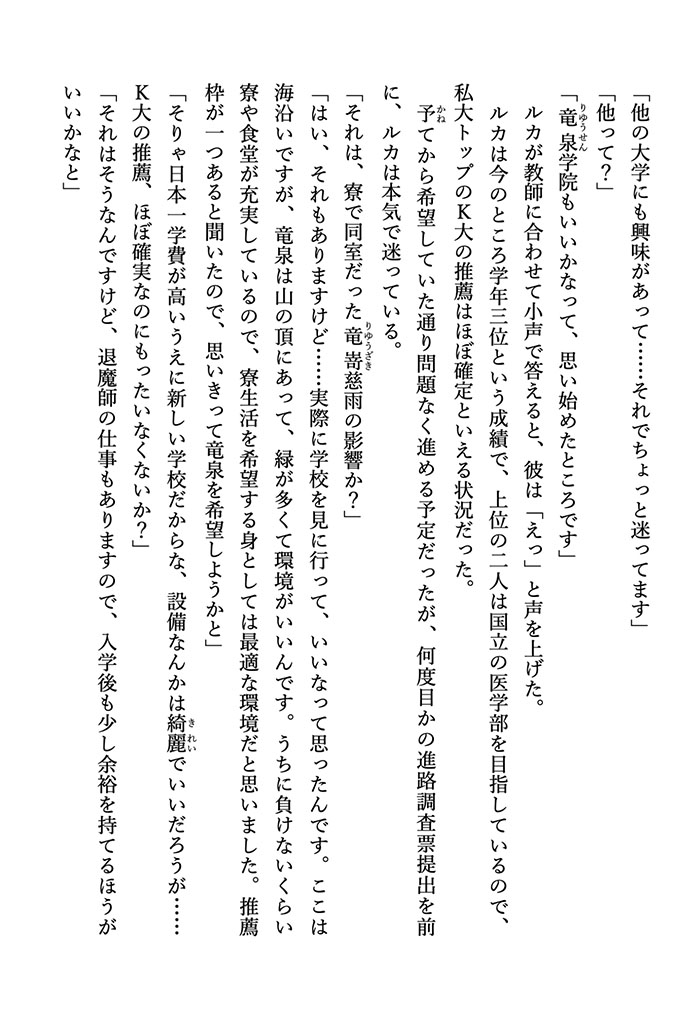 「他の大学にも興味があって……それでちょっと迷ってます」
「他って？」
「竜泉学院もいいかなって、思い始めたところです」
りゆうせん
　ルカが教師に合わせて小声で答えると、彼は「えっ」と声を上げた。
　ルカは今のところ学年三位という成績で、上位の二人は国立の医学部を目指しているので、
私大トップのＫ大の推薦はほぼ確定といえる状況だった。
　予てから希望していた通り問題なく進める予定だったが、何度目かの進路調査票提出を前
かね
に、ルカは本気で迷っている。
「それは、寮で同室だった竜嵜慈雨の影響か？」
りゆうざき
「はい、それもありますけど……実際に学校を見に行って、いいなって思ったんです。ここは
海沿いですが、竜泉は山の頂にあって、緑が多くて環境がいいんです。うちに負けないくらい
寮や食堂が充実しているので、寮生活を希望する身としては最適な環境だと思いました。推薦
枠が一つあると聞いたので、思いきって竜泉を希望しようかと」
「そりゃ日本一学費が高いうえに新しい学校だからな、設備なんかは綺麗でいいだろうが……
きれい
Ｋ大の推薦、ほぼ確実なのにもったいなくないか？」
「それはそうなんですけど、退魔師の仕事もありますので、入学後も少し余裕を持てるほうが
いいかなと」